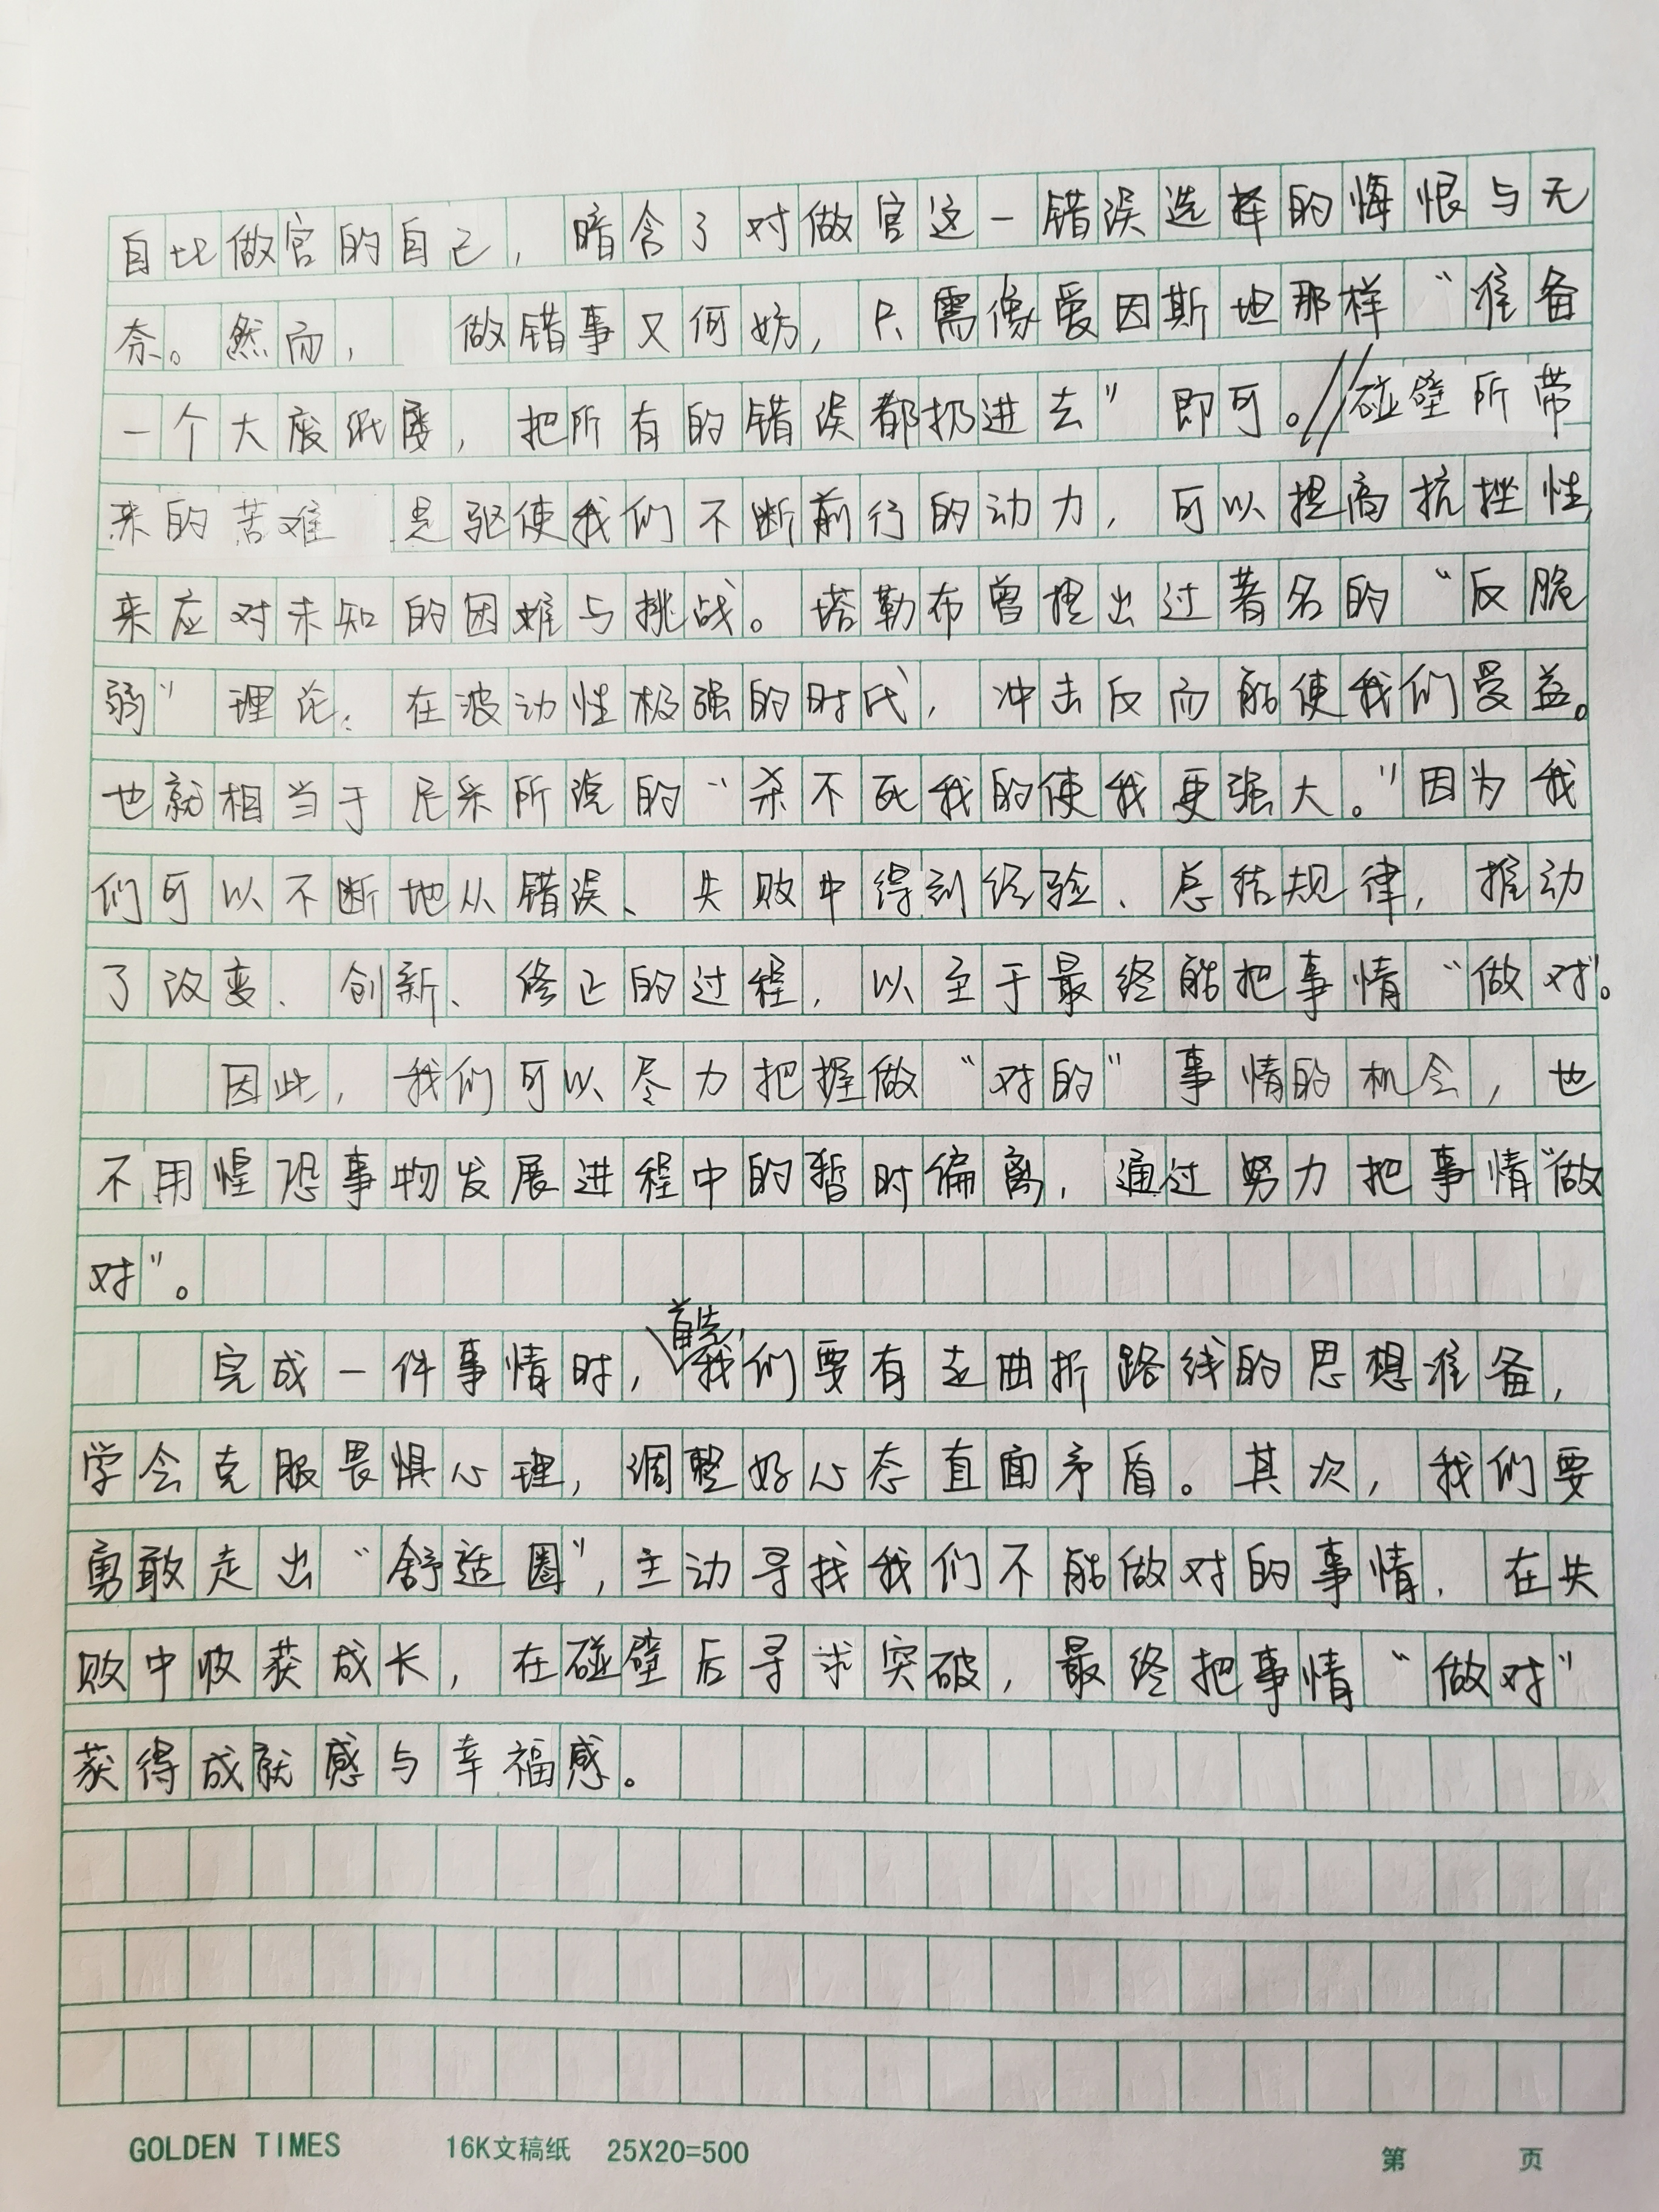 自比做官的自己，暗含了对做官这一错误选择的悔恨与无
奈。然而，做错事又何妨，只需像爱因斯坦那样“准备
一个大废纸篓，把所有的错误都扔进去”即可。//碰壁所带
来的苦难是驱使我们不断前行的动力，可以提高抗挫性，
来应对未知的困难与挑战。塔勒布曾提出过著名的“反脆
弱”理论：在波动性极强的时代，冲击反而能使我们受益。
也就相当于尼采所说的“杀不死我的使我更强大。”因为我
们可以不断地从错误、失败中得到经验、总结规律，推动
了改变、创新、修正的过程，以至于最终能把事情“做对”。
因此，我们可以尽力把握做“对的”事情的机会，也
不用惶恐事物发展进程中的暂时偏离，通过努力把事情“做
对”。
完成一件事情时，首先，我们要有走曲折路线的思想准备，
学会克服畏惧心理，调整好心态直面矛盾。其次，我们要
勇敢走出“舒适圈”，主动寻找我们不能做对的事情，在失
败中收获成长，在碰壁后寻求突破，最终把事情“做对”
获得成就感与幸福感。
GOLDEN TIMES 16K文稿纸 25X20=500 第 页